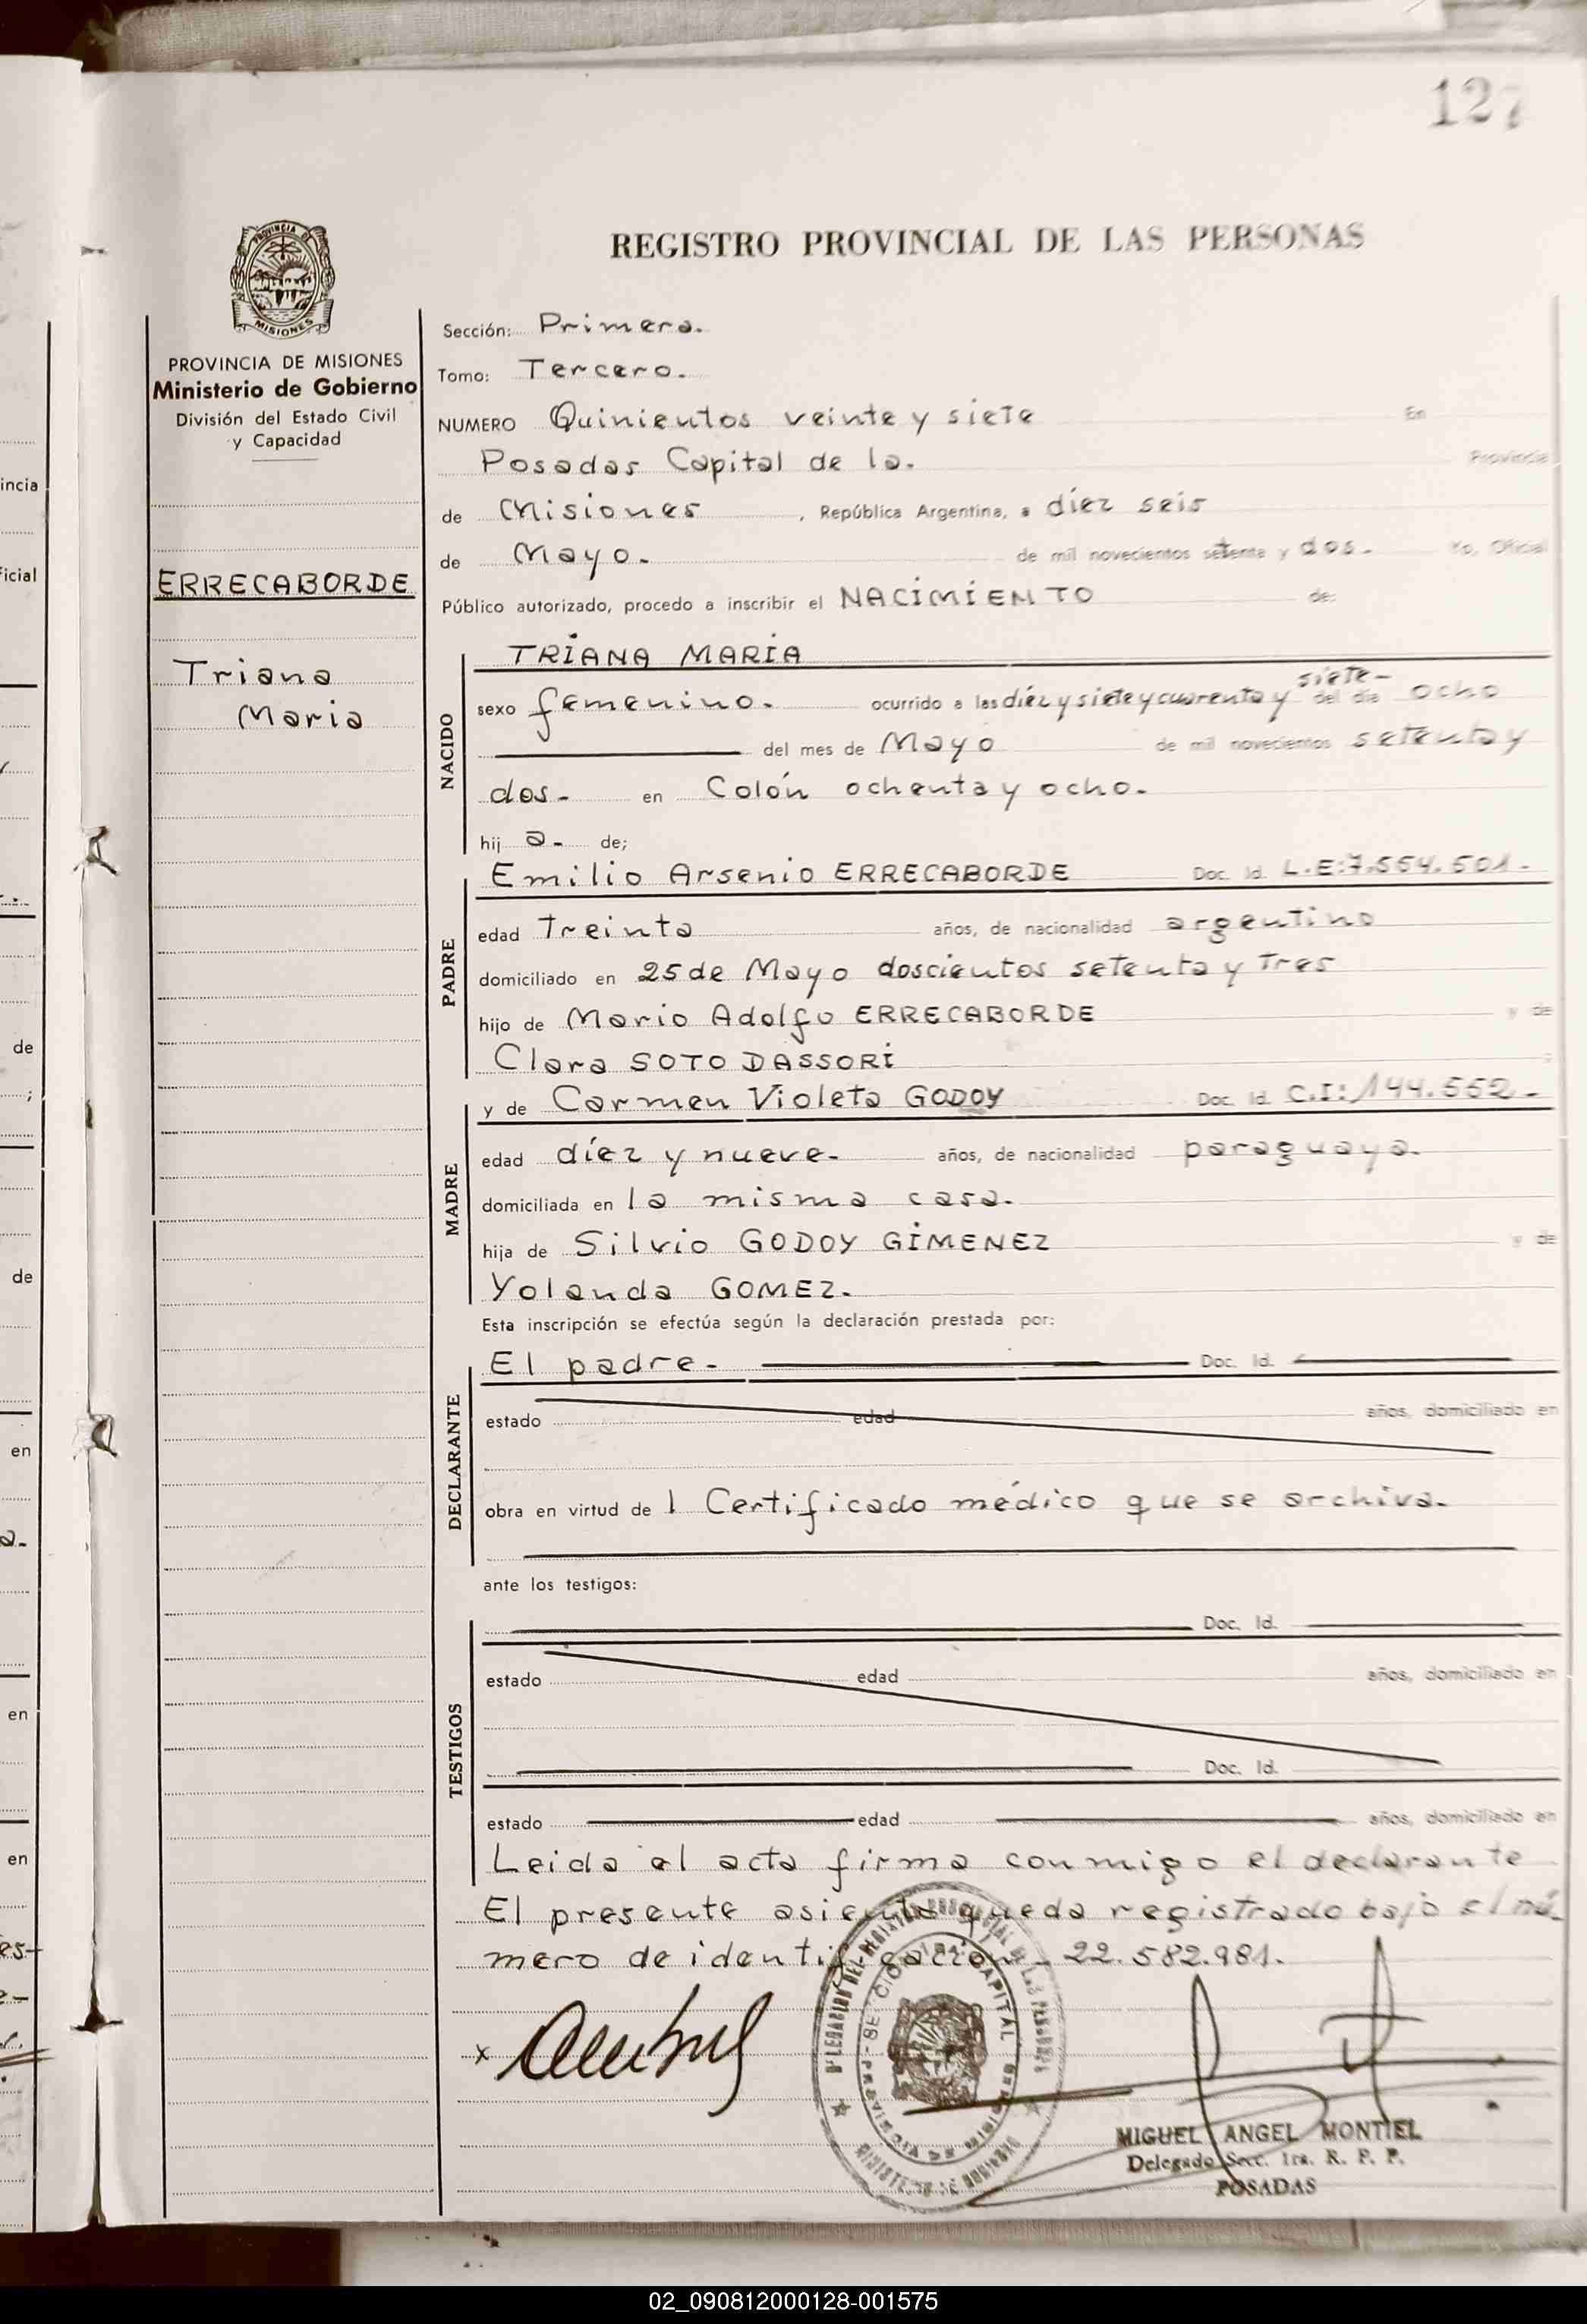 127
REGISTRO PROVINCIAL DE LAS PERSONAS
PROVINCIA DE
MISIONES
PROVINCIA DE MISIONES
Ministerio de Gobierno
División del Estado Civil
y Capacidad
ERRECABORDE
Triana
Maria
Sección: Primera.
Tomo: Tercero.
NUMERO Quinientos veinte y siete En
Posadas Capital de la. Provincia
de Misiones , República Argentina, a díez seis
de Mayo. de mil novecientos setenta y dos. Yo, Oficial
Público autorizado, procedo a inscribir el NACIMIENTO de:
NACIDO
TRIANA MARIA
sexo femenino. ocurrido a las díez y siete y cuarenta y siete- del día ocho
del mes de Mayo de mil novecientos setenta y
dos- en Colón ochenta y ocho.
hij a- de;
PADRE
Emilio Arsenio ERRECABORDE Doc. Id. L.E:7.554.501-
edad Treinta años, de nacionalidad argentino
domiciliado en 25 de Mayo doscientos setenta y Tres
hijo de Mario Adolfo ERRECABORDE y de
Clara SOTO DASSORI
MADRE
y de Carmen Violeta GODOY Doc. Id. C.I:144.552-
edad díez y nueve- años, de nacionalidad paraguaya.
domiciliada en la misma casa.
hija de Silvio GODOY GIMENEZ y de
Yolanda GOMEZ.
Esta inscripción se efectúa según la declaración prestada por:
DECLARANTE
El padre- Doc. Id.
estado edad años, domiciliado en
obra en virtud de 1 Certificado médico que se archiva.
ante los testigos:
TESTIGOS
Doc. Id.
estado edad años, domiciliado en
Doc. Id.
estado edad años, domiciliado en
Leida el acta firma conmigo el declarante
El presente asiento queda registrado bajo el nú-
mero de identificación 22.582.981.
x
MIGUEL ANGEL MONTIEL
Delegado Secc. 1ra. R. P. P.
POSADAS
incia
icial
de
de
en
en
en
02_090812000128-001575